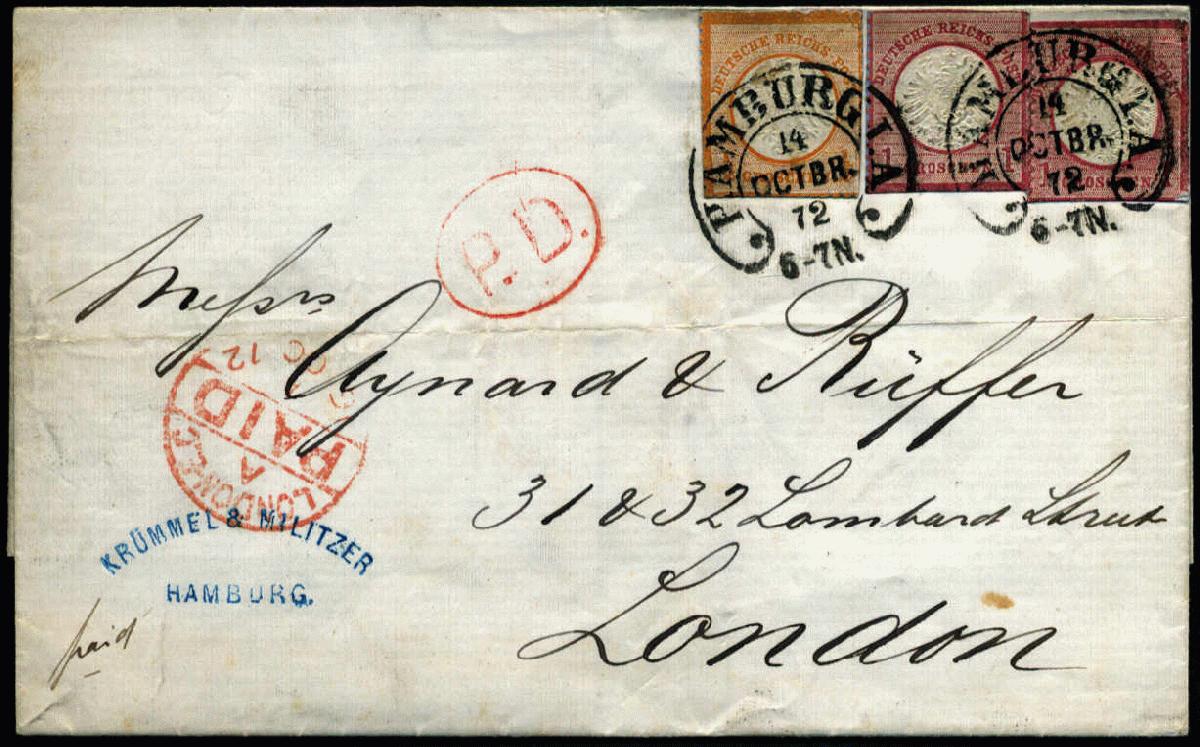 DEUTSCHE REICHS
DEUTSCHE REICHS POST
1 GROSCHEN 1
1 GROSCHEN
HAMBURG I.A.
14
OCTBR.
72
6-7N.
HAMBURG I.A.
14
OCTBR.
72
6-7N.
P.D.
Messrs
Aynard & Rüffer
31 & 32 Lombard Street
London
LONDON E.C
A
PAID
OC 12
KRÜMMEL & MILITZER
HAMBURG.
paid